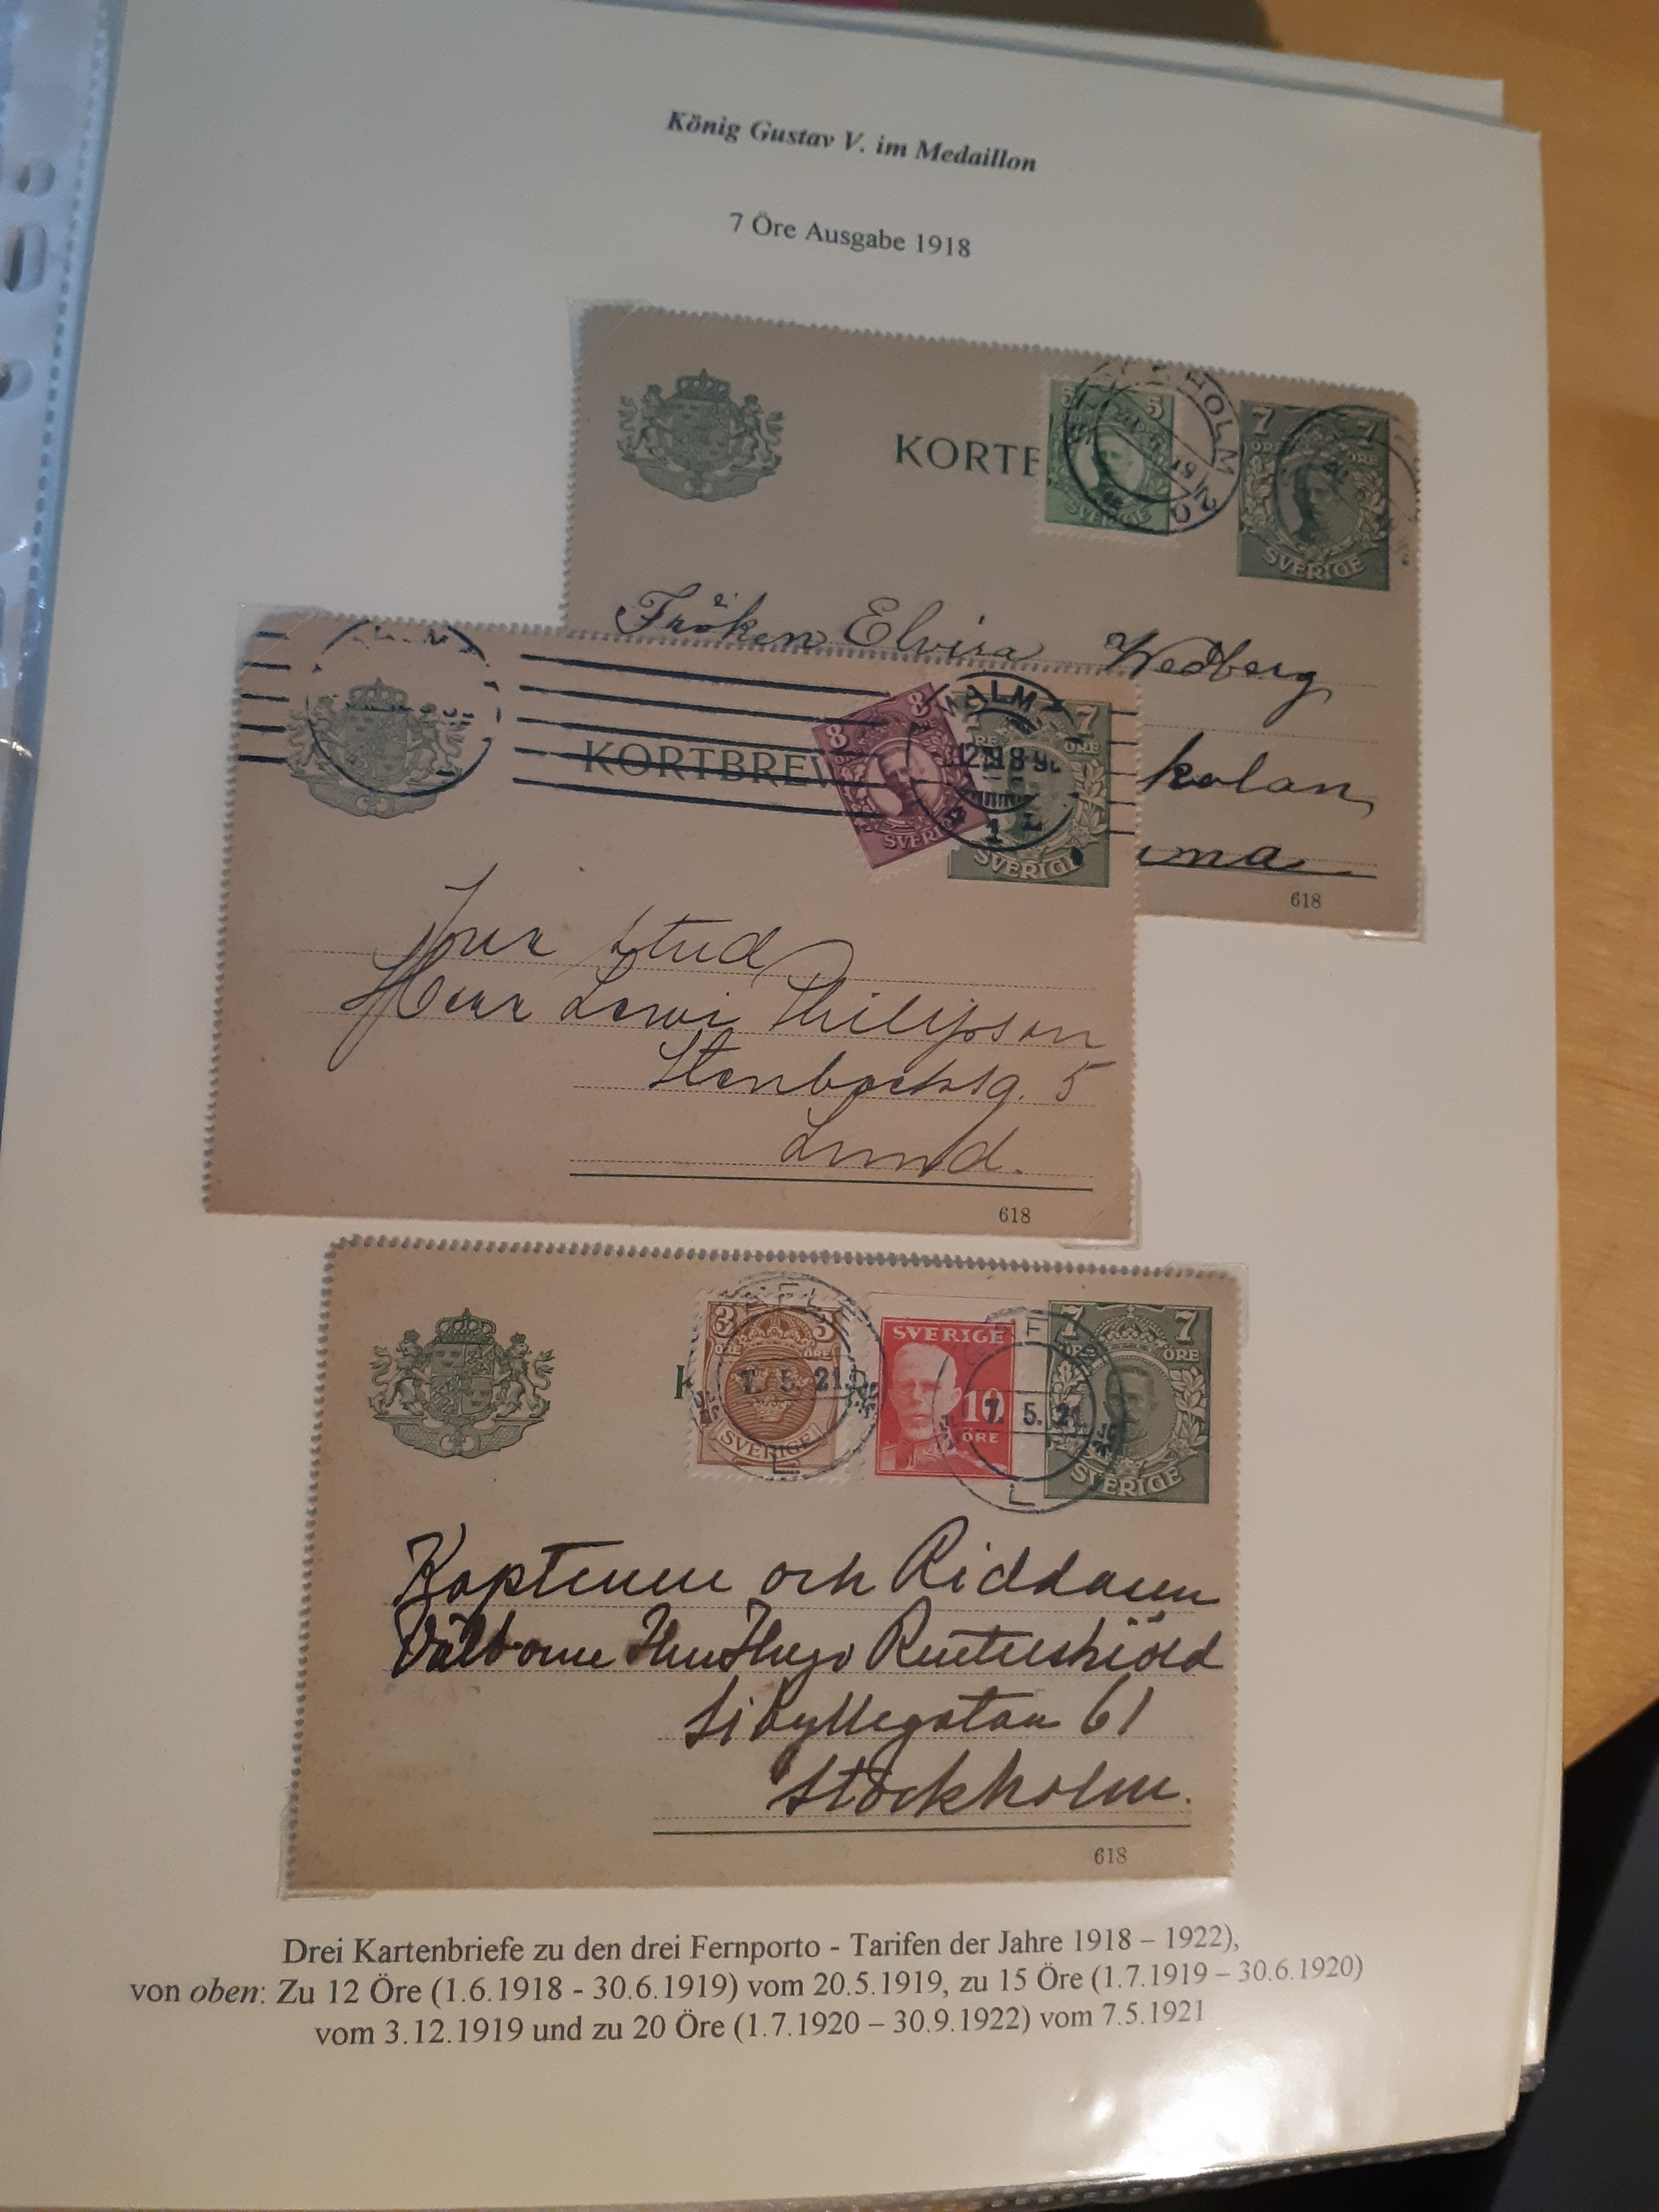 König Gustav V. im Medaillon
7 Öre Ausgabe 1918
KORTB
5 5
SVERIGE
HOLM
7 7
ÖRE ÖRE
SVERIGE
Fröken Elvira Wedberg
kolan
ma
618
KORTBREV
8 8
SVERI
MALM
7
ÖRE
SVERIGE
Jur stud
Herr Levi Philipson
Stenbocksg. 5
Lund.
618
K
3 3
ÖRE ÖRE
SVERIGE
7. 5. 21
SVERIGE
10
ÖRE
7. 5. 21
7 7
ÖRE ÖRE
SVERIGE
Kaptenen och Riddaren
Välborne Herr Hugo Reuterskiöld
Sibyllegatan 61
Stockholm.
618
Drei Kartenbriefe zu den drei Fernporto - Tarifen der Jahre 1918 – 1922),
von oben: Zu 12 Öre (1.6.1918 - 30.6.1919) vom 20.5.1919, zu 15 Öre (1.7.1919 – 30.6.1920)
vom 3.12.1919 und zu 20 Öre (1.7.1920 – 30.9.1922) vom 7.5.1921